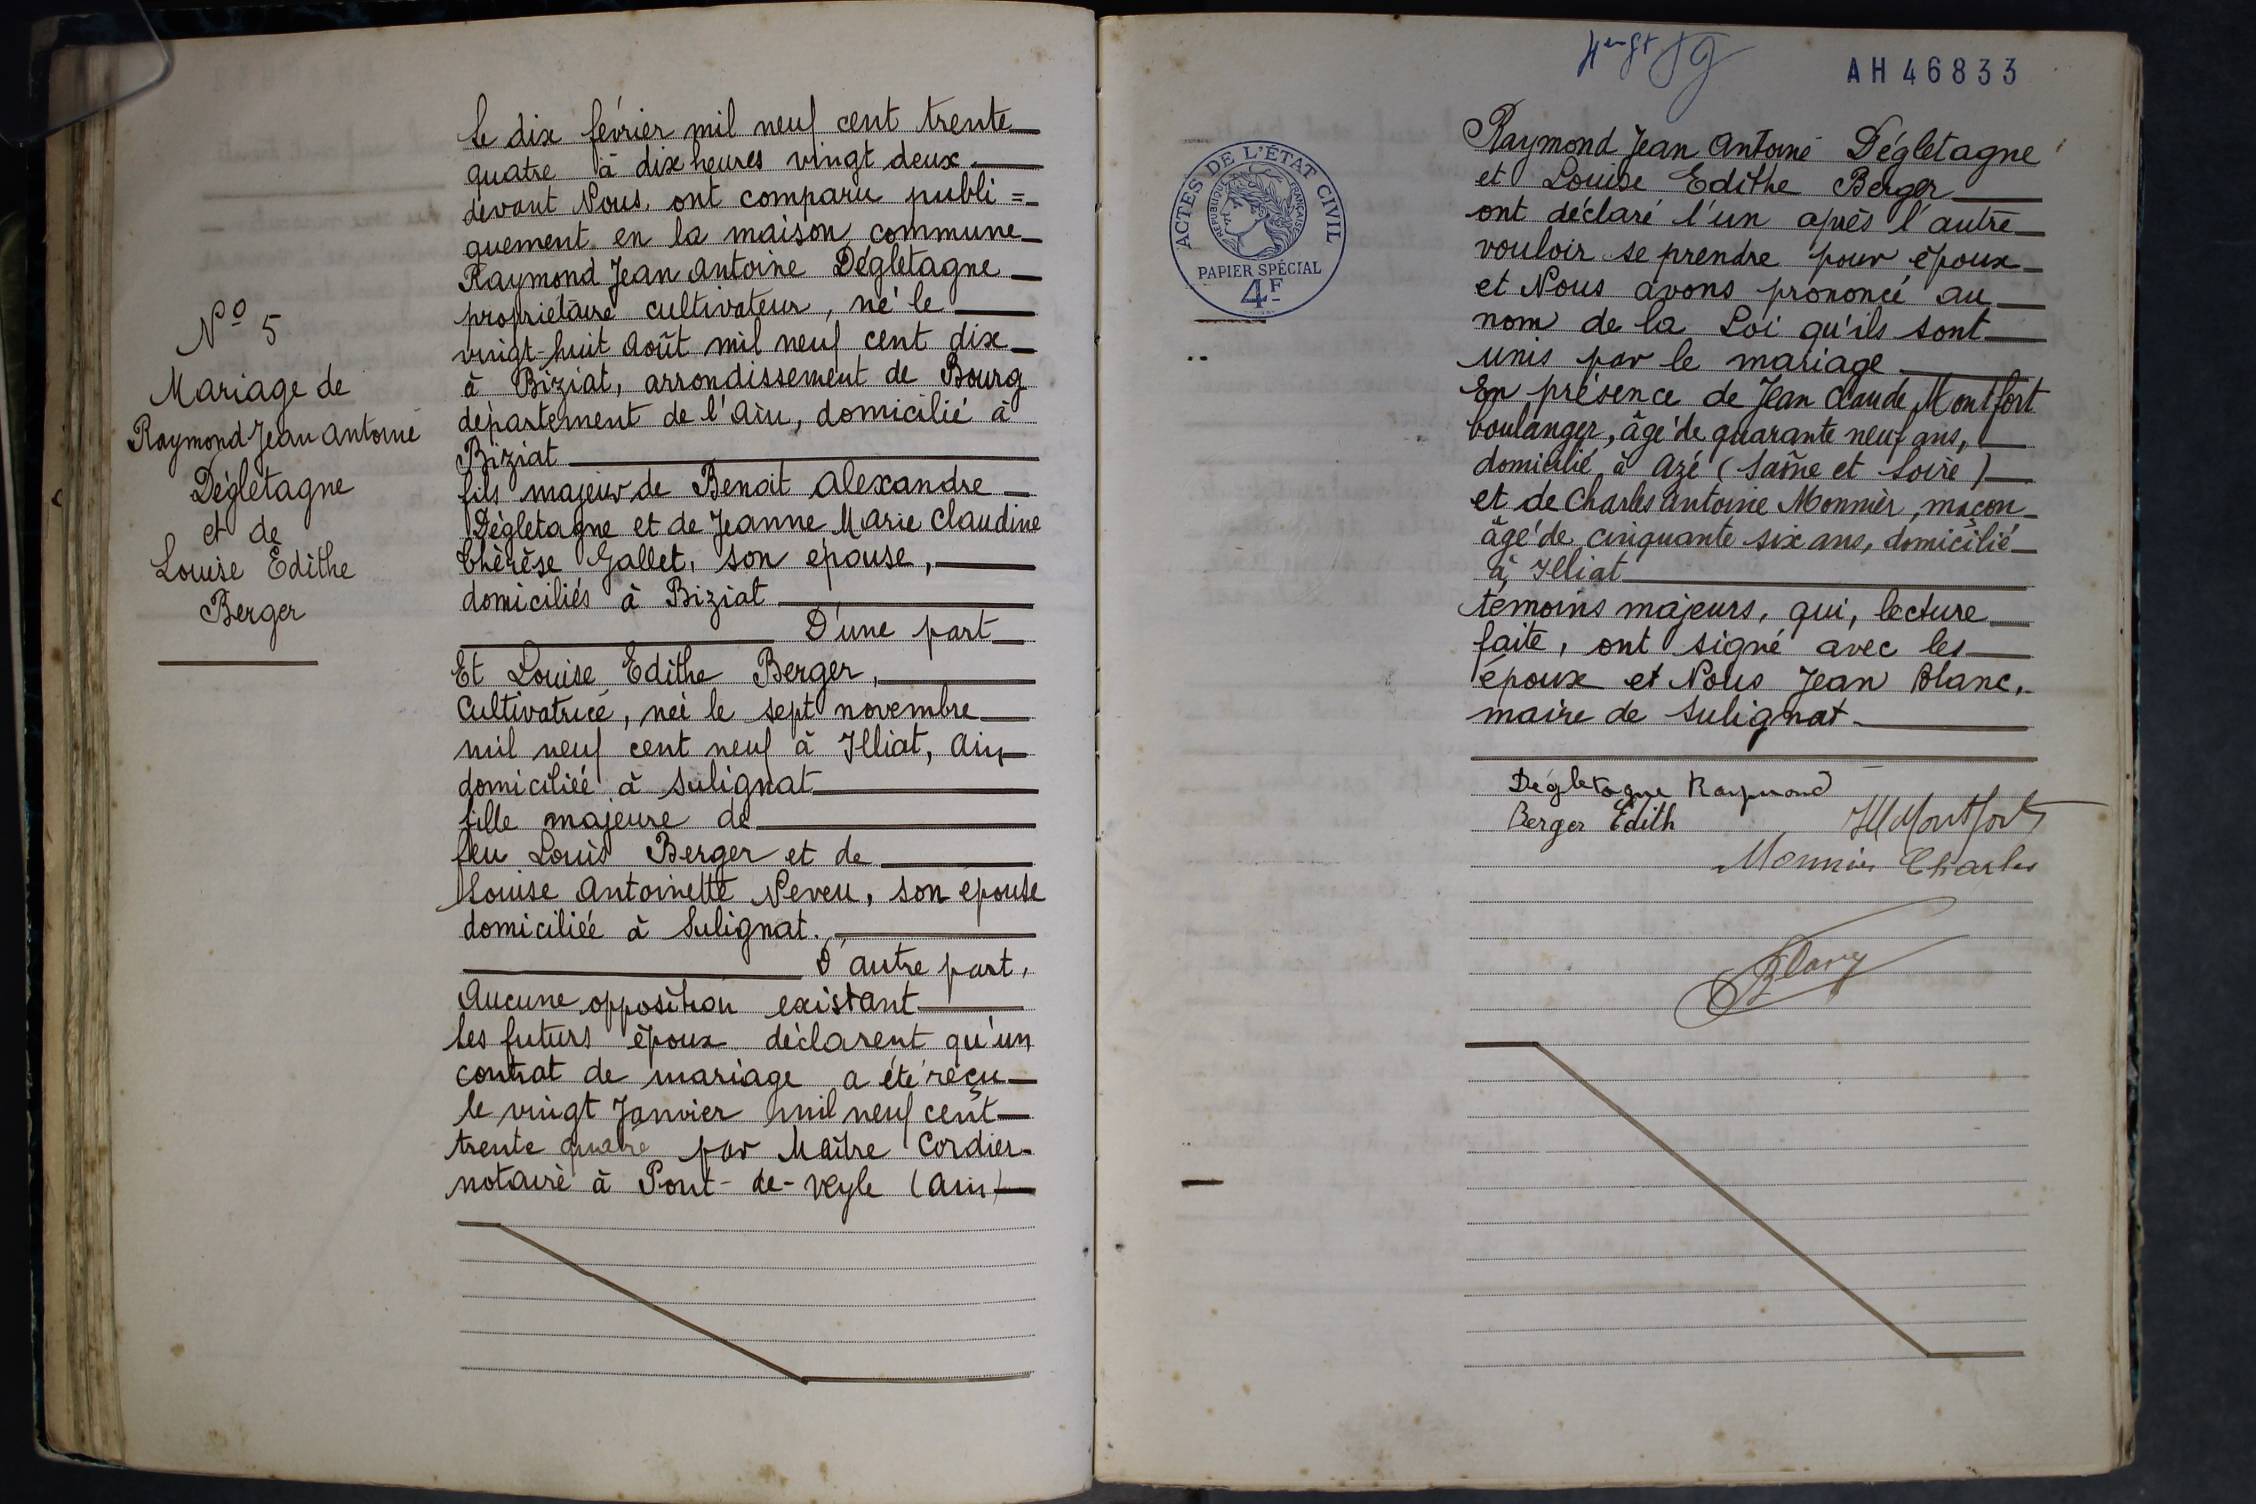 N° 5
Mariage de
Raymond Jean Antoine
Dégletagne
et de
Louise Edithe
Berger
Le dix février mil neuf cent trente
quatre à dix heures vingt deux
devant Nous, ont comparu publi=
quement en la maison commune
Raymond Jean Antoine Dégletagne
propriétaire cultivateur, né le
vingt-huit Août mil neuf cent dix
à Biziat, arrondissement de Bourg
département de l'Ain, domicilié à
Biziat
fils majeur de Benoit Alexandre
Dégletagne et de Jeanne Marie Claudine
Thérèse Gallet, son épouse,
domiciliés à Biziat
D'une part
Et Louise Edithe Berger,
Cultivatrice, née le sept novembre
mil neuf cent neuf à Illiat, Ain
domiciliée à Sulignat
fille majeure de
feu Louis Berger et de
Louise Antoinette Neveu, son épouse
domiciliée à Sulignat.
D'autre part,
Aucune opposition existant
Les futurs époux déclarent qu'un
contrat de mariage a été reçu
le vingt Janvier mil neuf cent
trente quatre par Maître Cordier
notaire à Pont-de-Veyle (Ain)
AH46833
ACTES DE L'ÉTAT CIVIL
RÉPUBLIQUE FRANÇAISE
PAPIER SPÉCIAL
4F
Raymond Jean Antoine Dégletagne
et Louise Edithe Berger
ont déclaré l'un après l'autre
vouloir se prendre pour époux
et Nous avons prononcé au
nom de la Loi qu'ils sont
unis par le mariage
En présence de Jean Claude Montfort
boulanger, âgé de quarante neuf ans,
domicilié à Azé (Saône et Loire)
et de Charles Antoine Monnier, maçon
âgé de cinquante six ans, domicilié
à Illiat
témoins majeurs, qui, lecture
faite, ont signé avec les
époux et Nous Jean Blanc,
maire de Sulignat.
Dégletagne Raymond
Berger Edith
Montfort
Monnier Charles
Blanc